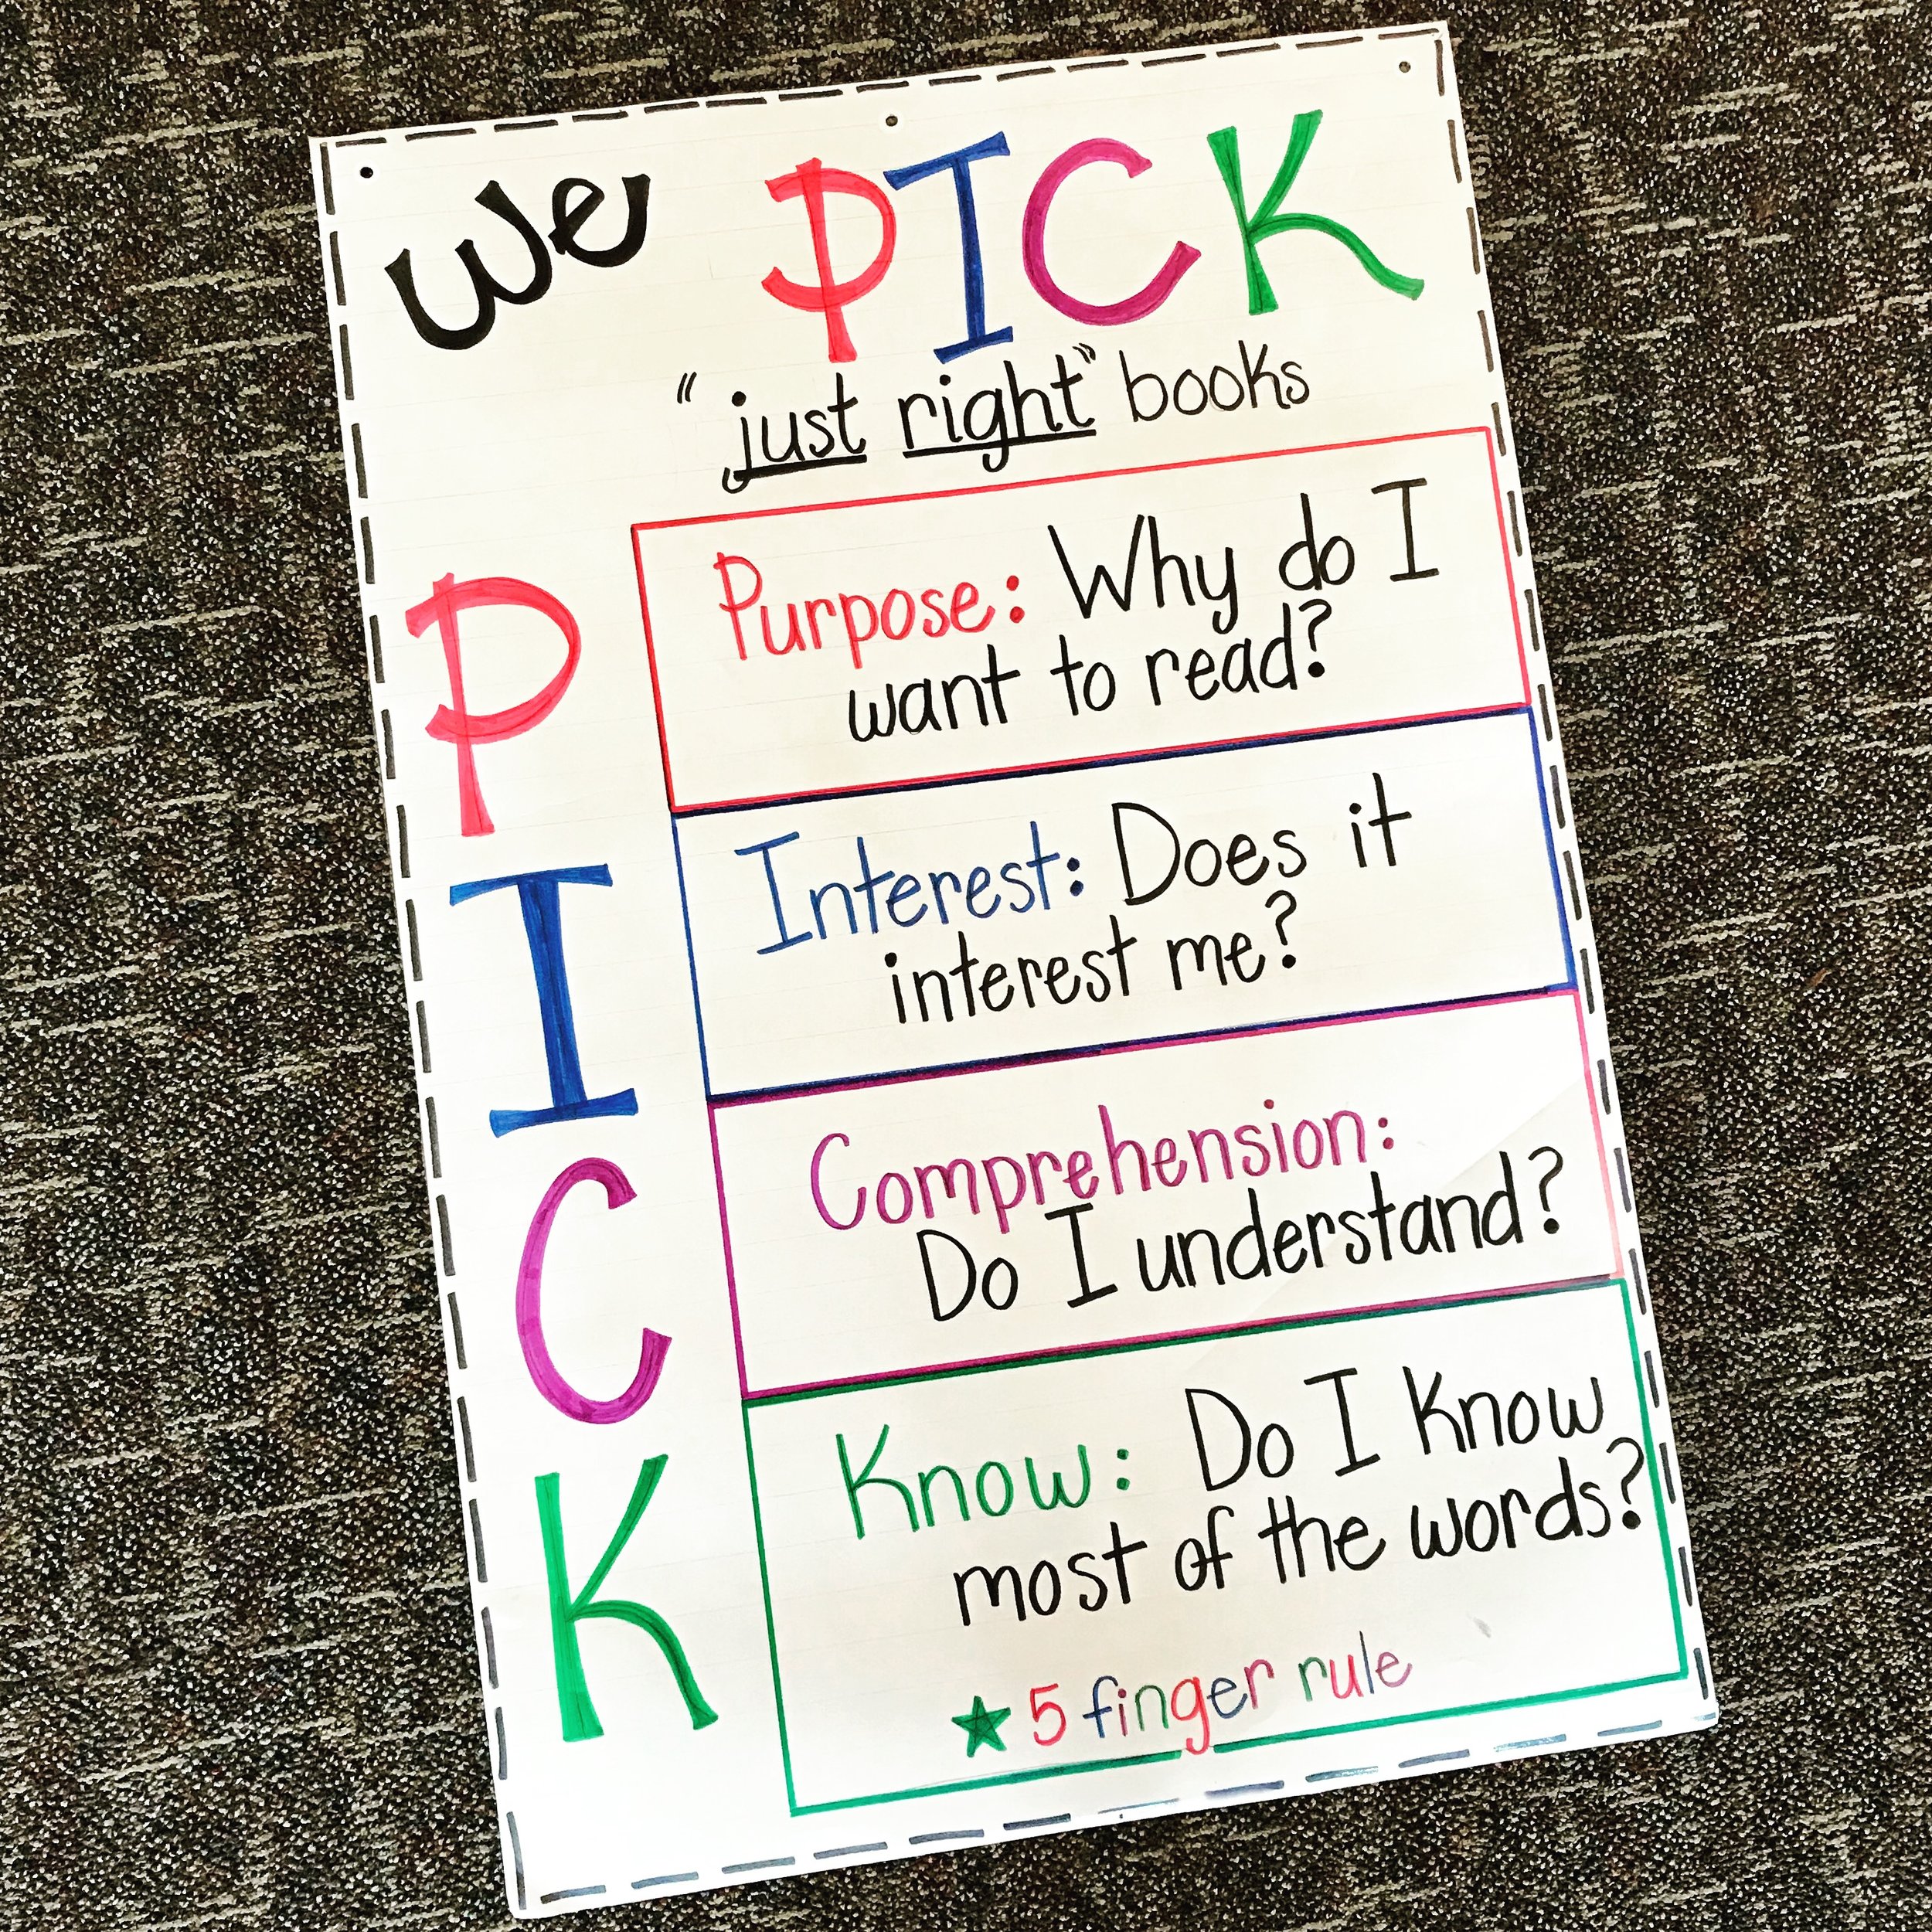 We PICK
"just right" books
P
Purpose: Why do I
want to read?
I
Interest: Does it
interest me?
C
Comprehension:
Do I understand?
K
Know: Do I know
most of the words?
★ 5 finger rule